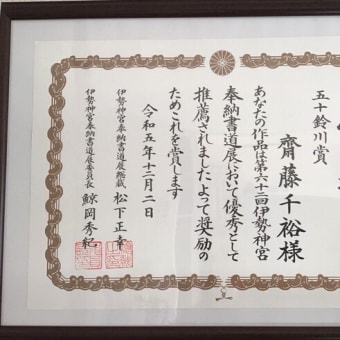 五十鈴川賞
齋藤千裕様
あなたの作品は第六十二回伊勢神宮
奉納書道展において優秀として
推薦されましたよって奨励の
ためこれを賞します
令和五年十二月二日
伊勢神宮奉納書道展総裁 松下正幸
伊勢神宮奉納書道展委員長 鯨岡秀紀